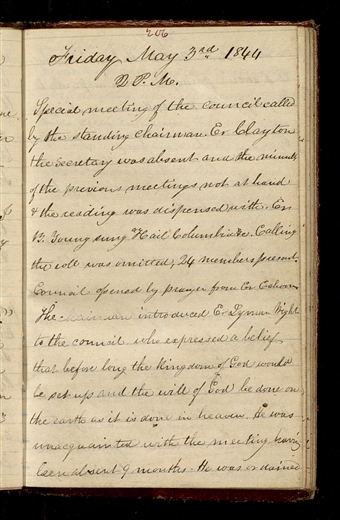 206
Friday May 3rd 1844
2 P.M.
Special meeting of the council called
by the standing chairman. Er Clayton
the secretary was absent and the minutes
of the previous meetings not at hand
& the reading was dispensed with. Er
B. Young sung "Hail Columbia &c. Calling
the roll was omitted, 24 members present.
Council opened by prayer from Er Cahoon
The chairman introduced Er Lyman Wight
to the council who expressed a belief
that before long the Kingdom of God would
be set up and the will of God be done on
the earth as it is done in heaven. He was
unacquainted with the meeting having
been absent 9 months. He was ordained